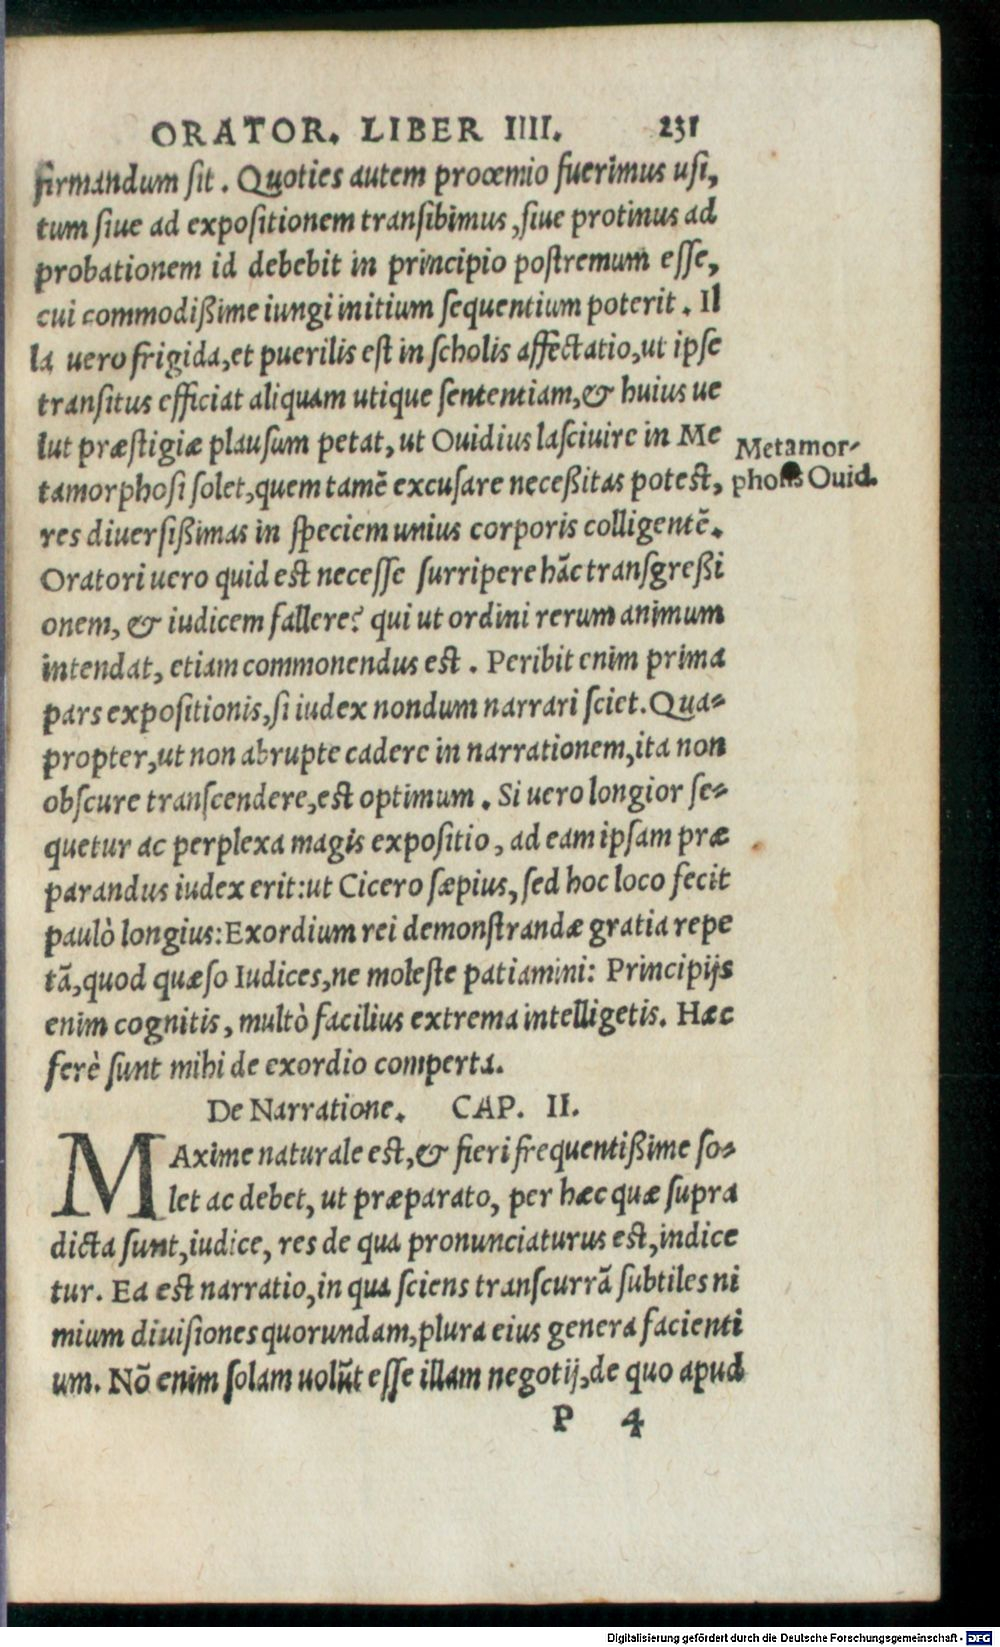 ORATOR. LIBER IIII. 231
firmandum sit. Quoties autem proœmio fuerimus usi,
tum siue ad expositionem transibimus, siue protinus ad
probationem id debebit in principio postremum esse,
cui commodißime iungi initium sequentium poterit. Il
la uero frigida, et puerilis est in scholis affectatio, ut ipse
transitus efficiat aliquam utique sententiam, & huius ue
lut præstigiæ plausum petat, ut Ouidius lasciuire in Me
tamorphosi solet, quem tamẽ excusare neceßitas potest,
Metamor-
phosis Ouid.
res diuersißimas in speciem unius corporis colligentẽ.
Oratori uero quid est necesse surripere hãc transgreßi
onem, & iudicem fallere? qui ut ordini rerum animum
intendat, etiam commonendus est. Peribit enim prima
pars expositionis, si iudex nondum narrari sciet. Qua-
propter, ut non abrupte cadere in narrationem, ita non
obscure transcendere, est optimum. Si uero longior se-
quetur ac perplexa magis expositio, ad eam ipsam præ
parandus iudex erit: ut Cicero sæpius, sed hoc loco fecit
paulò longius: Exordium rei demonstrandæ gratia repe
tã, quod quæso Iudices, ne moleste patiamini: Principijs
enim cognitis, multò facilius extrema intelligetis. Hæc
ferè sunt mihi de exordio comperta.
De Narratione. CAP. II.
MAxime naturale est, & fieri frequentißime so-
let ac debet, ut præparato, per hæc quæ supra
dicta sunt, iudice, res de qua pronunciaturus est, indice
tur. Ea est narratio, in qua sciens transcurrã subtiles ni
mium diuisiones quorundam, plura eius genera facienti
um. Nõ enim solam uolũt esse illam negotij, de quo apud
P 4
Digitalisierung gefördert durch die Deutsche Forschungsgemeinschaft - DFG